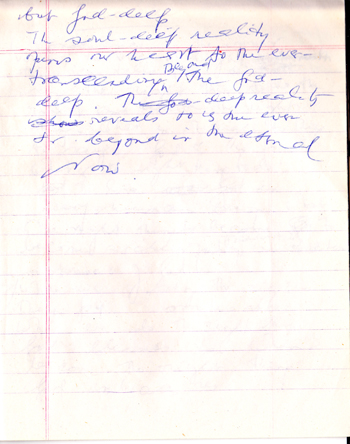 but God-deep
The soul-deep reality
our heart to the ever-
transcending Beyond
in the God-
deep. The God-deep reality
reveals to us the ever
tr. beyond in the eternal
Now.